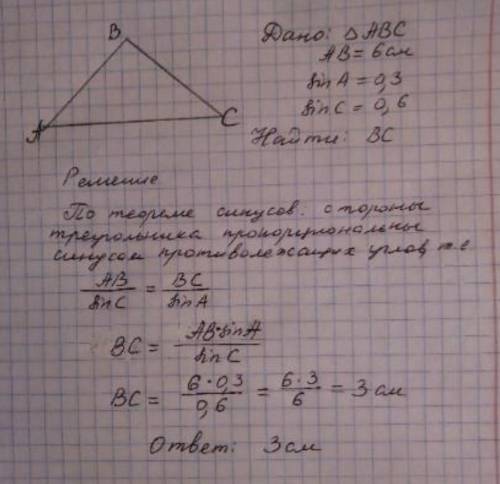 B
A
C
Дано: △ABC
AB = 6 см
sin A = 0,3
sin C = 0,6
Найти: BC
Решение
По теореме синусов. стороны
треугольника пропорциональны
синусам противолежащих углов т.е
AB/sin C = BC/sin A
BC = AB·sin A/sin C
BC = 6·0,3/0,6 = 6·3/6 = 3 см
Ответ: 3 см